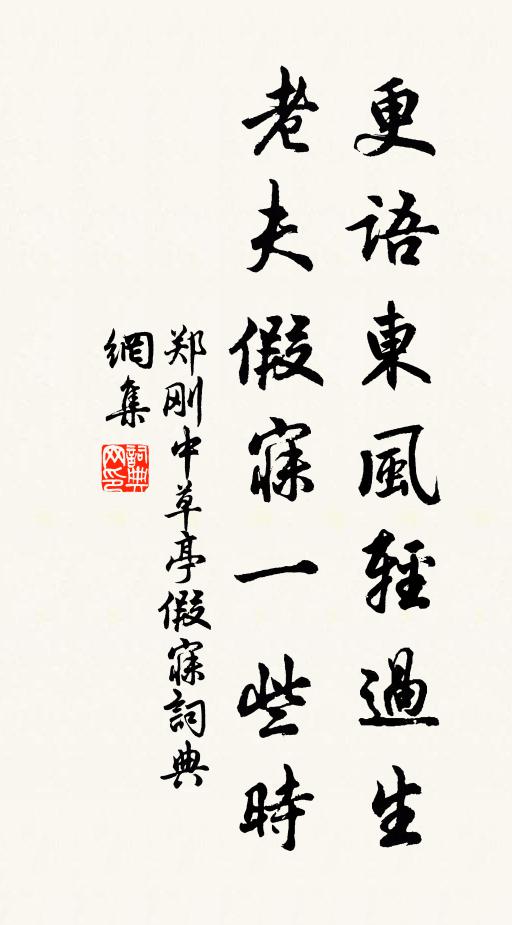 更語東風輕過生
老夫假寐一些時
郑刚中草亭假寐詞典
網集
詞典網印